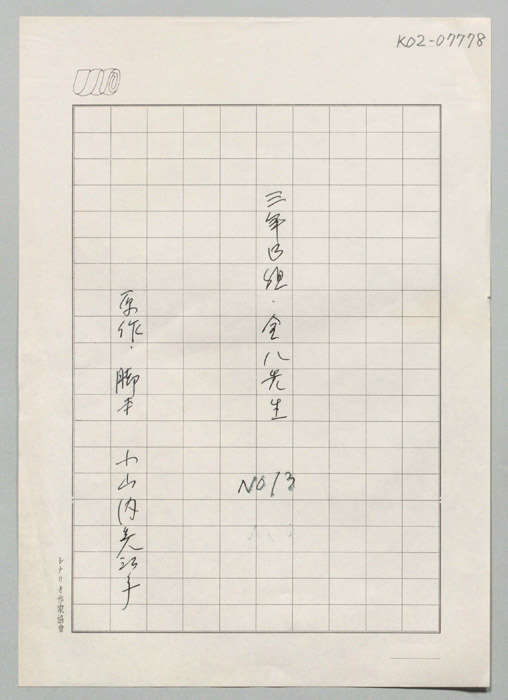 K02-07778
三年B組・金八先生
NO13
原作・脚本 小山内美江子
シナリオ作家協會